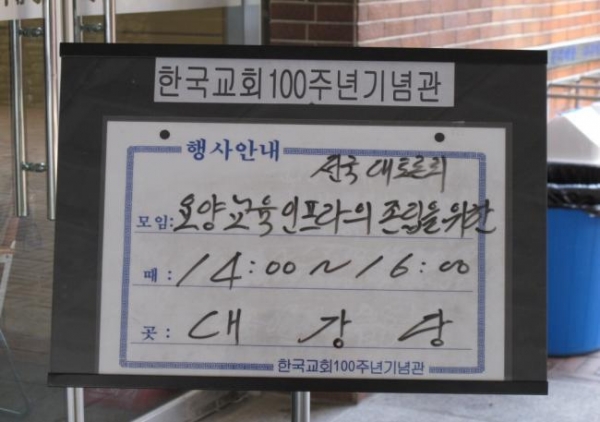 한국교회100주년기념관
행사안내
전국 대토론회
모임: 요양교육인프라의 존립을 위한
때: 14:00 ~ 16:00
곳: 대 강 당
한국교회100주년기념관